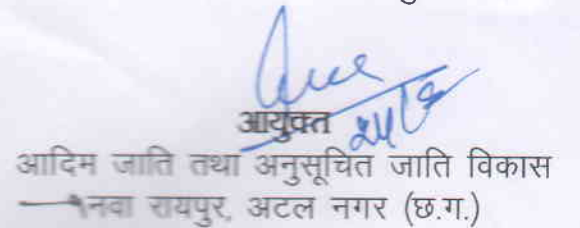 आयुक्त
आदिम जाति तथा अनुसूचित जाति विकास
नवा रायपुर, अटल नगर (छ.ग.)